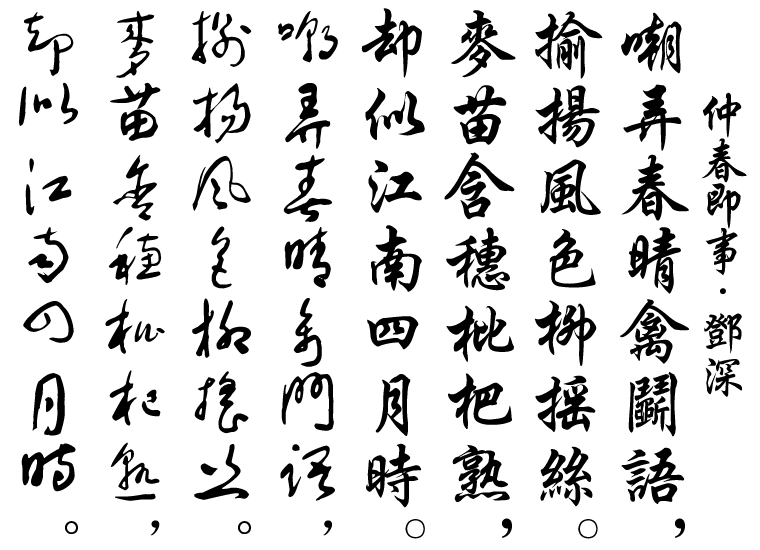 仲春即事·鄧深
嘲弄春晴禽鬭語，
揄揚風色柳搖絲。
麥苗含穗枇杷熟，
却似江南四月時。
嘲弄春晴禽鬭語，
揄揚風色柳搖絲。
麥苗含穗枇杷熟，
却似江南四月時。